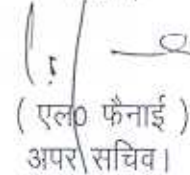 ( एल० फैनाई )
अपर सचिव।